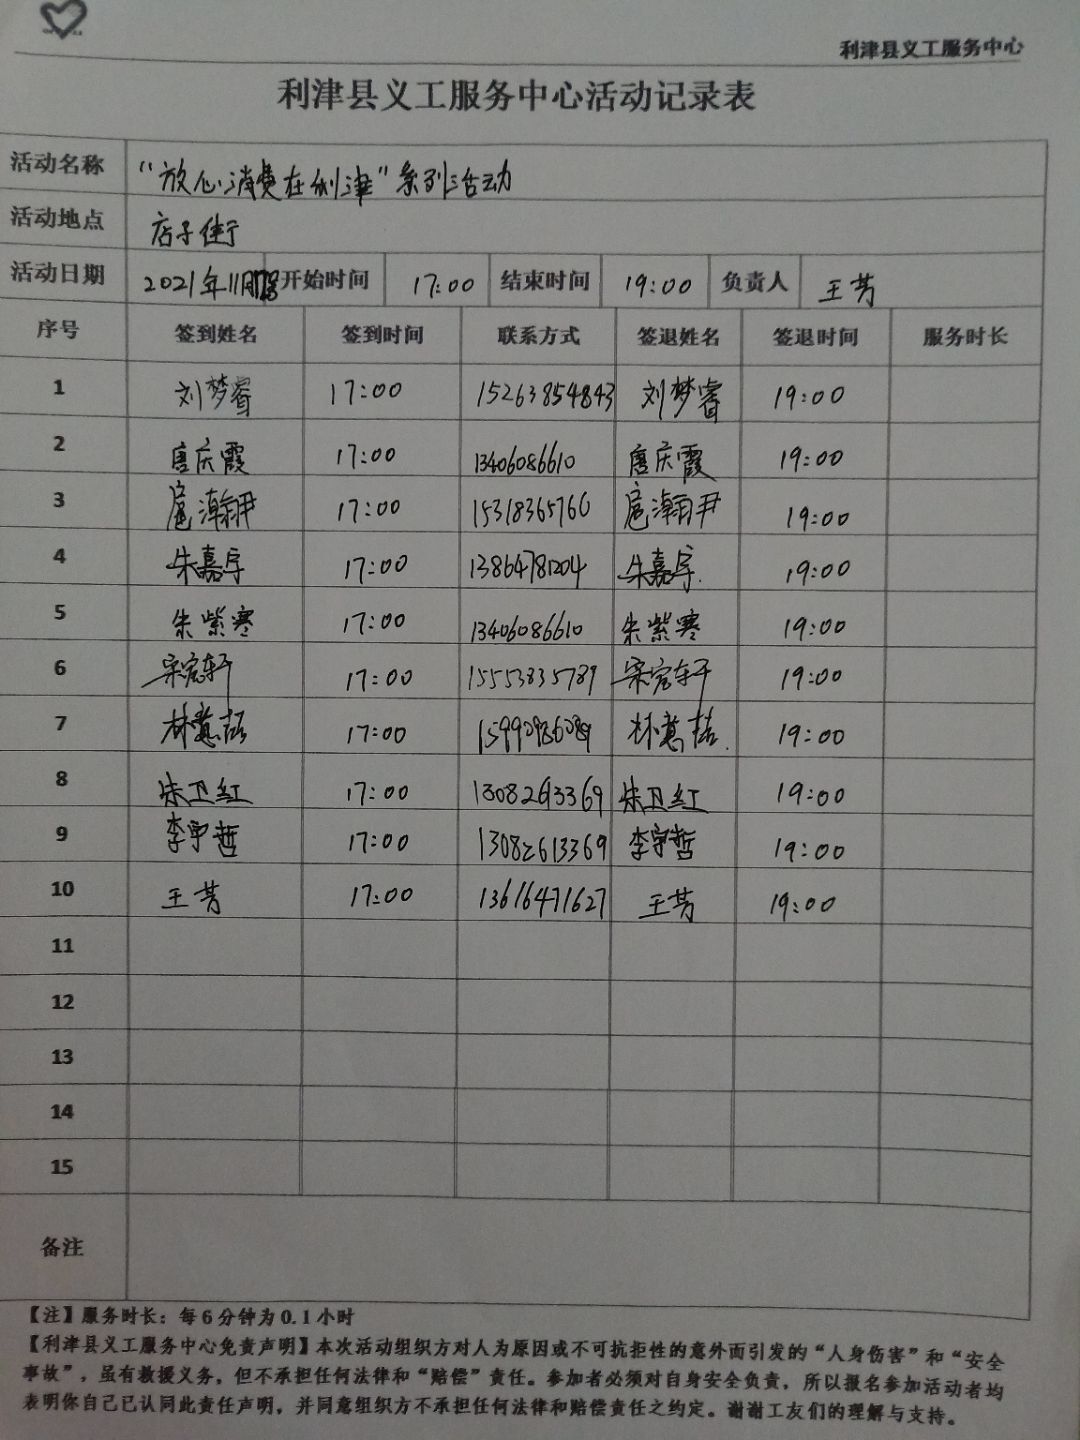 利津县义工服务中心
利津县义工服务中心活动记录表
活动名称 “放心消费在利津”系列活动
活动地点 店子街
活动日期 2021年11月 开始时间 17:00 结束时间 19:00 负责人 王芳
序号 签到姓名 签到时间 联系方式 签退姓名 签退时间 服务时长
1 刘梦睿 17:00 15263854843 刘梦睿 19:00
2 唐庆霞 17:00 13406086610 唐庆霞 19:00
3 扈瀚尹 17:00 15318365760 扈瀚尹 19:00
4 朱嘉宇 17:00 13864781204 朱嘉宇 19:00
5 朱紫寒 17:00 13406086610 朱紫寒 19:00
6 宋宏轩 17:00 15553835789 宋宏轩 19:00
7 林慧喆 17:00 19:00
8 朱卫红 17:00 朱卫红 19:00
9 李宇哲 17:00 13082613369 李宇哲 19:00
10 王芳 17:00 13616471627 王芳 19:00
11
12
13
14
15
备注
【注】服务时长：每6分钟为0.1小时
【利津县义工服务中心免责声明】本次活动组织方对人为原因或不可抗拒性的意外而引发的“人身伤害”和“安全
事故”，虽有救援义务，但不承担任何法律和“赔偿”责任。参加者必须对自身安全负责，所以报名参加活动者均
表明你自己已认同此责任声明，并同意组织方不承担任何法律和赔偿责任之约定。谢谢工友们的理解与支持。